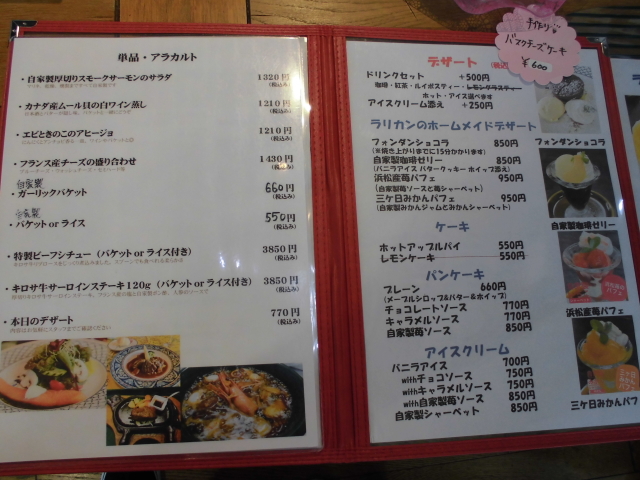 単品・アラカルト
・自家製厚切りスモークサーモンのサラダ 1320円
(税込み)
・カナダ産ムール貝の白ワイン蒸し 1210円
(税込み)
・エビときのこのアヒージョ 1210円
(税込み)
・フランス産チーズの盛り合わせ 1430円
(税込み)
自家製
・ガーリックバケット 660円
(税込み)
・バケット or ライス 550円
(税込み)
・特製ビーフシチュー（バケット or ライス付き） 3850円
(税込み)
・キロサ牛サーロインステーキ 120g（バケット or ライス付き） 3850円
(税込み)
・本日のデザート 770円
(税込み)
手作り
バスクチーズケーキ
¥600
デザート
ドリンクセット +500円
珈琲・紅茶・ルイボスティー・レモングラスティー
ホット・アイス選べます
アイスクリーム添え +250円
ラリカンのホームメイドデザート
フォンダンショコラ 850円
(※焼き上がりまでに15分かかります)
自家製珈琲ゼリー 850円
(バニラアイス バタークッキー ホイップ添え)
浜松産苺パフェ 950円
(自家製苺ソースと苺シャーベット)
三ケ日みかんパフェ 950円
(自家製みかんジャムとみかんシャーベット)
ケーキ
ホットアップルパイ 550円
レモンケーキ 550円
パンケーキ
プレーン 660円
(メープルシロップ&バター&ホイップ)
チョコレートソース 770円
キャラメルソース 770円
自家製苺ソース 850円
アイスクリーム
バニラアイス 700円
withチョコソース 750円
withキャラメルソース 750円
with自家製苺ソース 850円
自家製シャーベット 850円
フォンダンショコラ
自家製珈琲ゼリー
浜松産苺パフェ
三ケ日みかんパフ